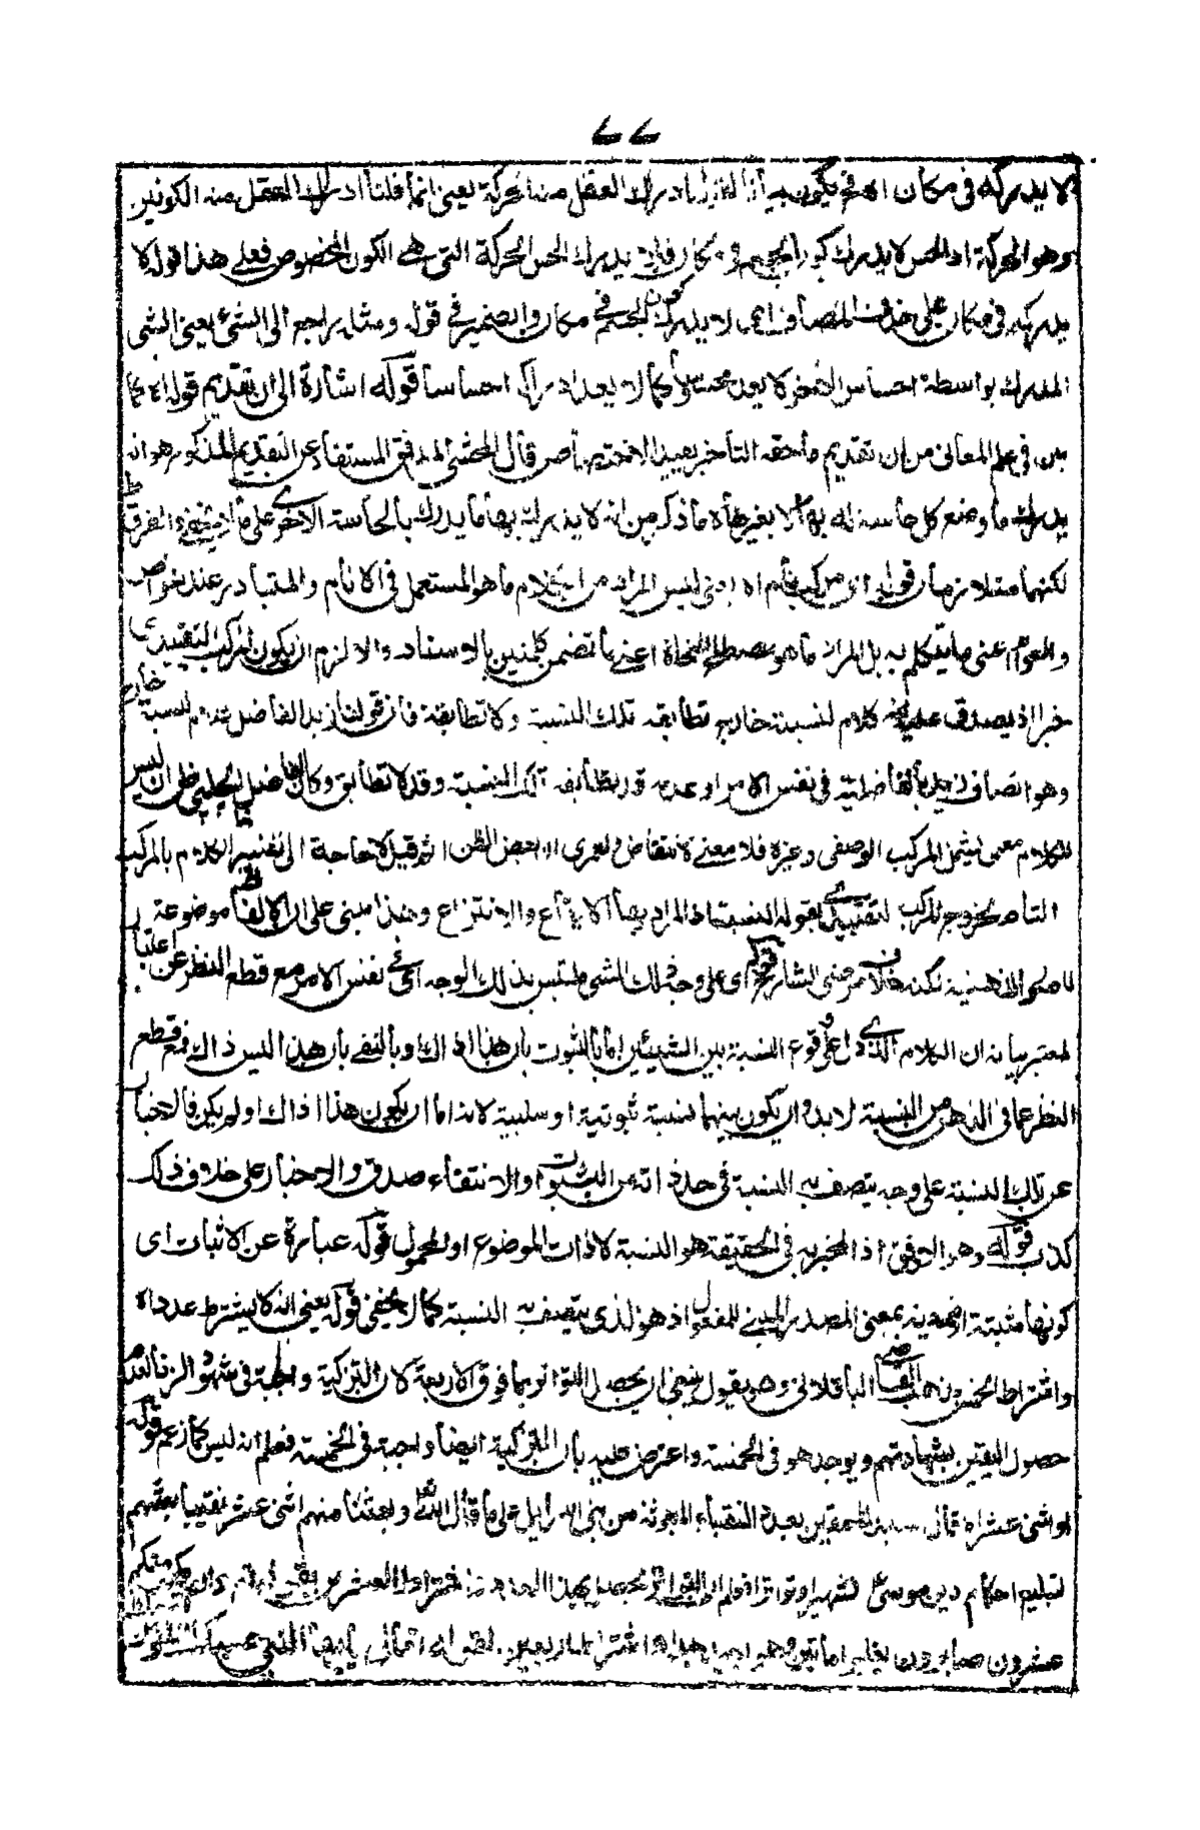 ٧٧
لا يدركه فى مكان اه فح يكون ادراك العقل منه الحركة يعنى انما قلنا ادراك العقل منه الكونين
وهو الحركة اذ الحس لا يدرك كون الجسم فى مكان فلا يدرك الحس الحركة التى هى الكون المخصوص فعلى هذا قوله لا
يدركه فى مكان على حذف المضاف اى لا يدرك كون الجسم فى مكان والضمير فى قوله ومثله راجع الى الشئ يعنى الشى
المدرك بواسطة احساس الاخر لا يعد محسوسا كما لا يعد ادراكه احساسا قوله اشارة الى ان تقديم قوله اه لما
بين فى علم المعانى من ان تقديم ما حقه التأخير يفيد الاختصاص قال المحشى المدقق المستفاد عن التقديم المذكور هو انه
يدرك ما وضع كل حاسة له بها لا بغيرها اه ما ذكر من انه لا يدرك بها ما يدرك بالحاسة الاخرى على ما لا يخفى والفرق ظ
لكنهما متلازمان قوله اى مركب تام اه يعنى ليس المراد من الكلام ما هو المستعمل فى الانام والمتبادر عند الخواص
والعوام اعنى ما يتكلم به بل المراد ما هو مصطلح النحاة اعنى ما تضمن كلمتين بالاسناد والا لزم ان يكون المركب التقييدى
خبرا اذ يصدق عليه انه كلام لنسبته خارج تطابقه تلك النسبة او لا تطابقه فان قولنا زيد الفاضل لنسبته خارج
وهو اتصاف زيد بالفاضلية فى نفس الامر او عدمه قد تطابقه تلك النسبة وقد لا تطابق وكان الفاضل الچلپى ظن ان ليس
للكلام معنى يشمل المركب الوصفى وغيره فلا معنى لانتقاض ولعمرى ان بعض الظن اثم قيل لا حاجة الى تفسير الكلام بالمركب
التام لخروج المركب التقييدى بقوله لنسبته اذ المراد بها الايقاع والانتزاع وهذا مبنى على ان الالفاظ موضوعة
للصور الذهنية لكنه خلاف مرضى الشارح قوله اى على وجه ذلك الشئ ملتبس بذلك الوجه اى فى نفس الامر مع قطع النظر عن اعتبار
المعتبر بيانه ان الكلام الذى دل على وقوع النسبة بين الشيئين اما بالثبوت بان هذا ذاك او بالنفى بان هذا ليس ذاك فمع قطع
النظر عما فى الذهن من النسبة لا بد وان يكون بينهما نسبة ثبوتية او سلبية لانه اما ان يكون هذا ذاك او لم يكن فالاخبار
عن تلك النسبة على وجه يتصف به النسبة فى حد ذاته من الثبوت او الانتفاء صدق والاخبار على خلاف ذلك
كذب قوله وهو الاوفق اذ المخبر به فى الحقيقة هو النسبة لا ذات الموضوع او المحمول قوله عبارة عن الاثبات اى
كونها مثبتة او منفية بمعنى المصدر المبنى للمفعول اذ هو الذى يتصف به النسبة كما لا يخفى قوله يعنى انه لا يشترط عدد اه
واشتراط الخمس مذهب القاضى الباقلانى وهو يقول ينبغى ان يحصل التواتر بما فوق الاربعة لان التزكية واجبة فى شهود الزنا لعدم
حصول اليقين بشهادتهم ويوجد هو فى الخمسة واعترض عليه بان التزكية ايضا واجبة فى الخمسة فعلم انه ليس كما زعم قوله
او اثنى عشر اه قال سيد المحققين بعدد النقباء المبعوثة من بنى اسرائيل على ما قال الله تع وبعثنا منهم اثنى عشر نقيبا بعثهم
لتبليغ احكام دين موسى لتشهير او تواترا فعلم ان التواتر يحصل بهذا العدد منكم
عشرون صابرون يغلبوا مأتين لقوله تعالى يا ايها النبى حسبك الله